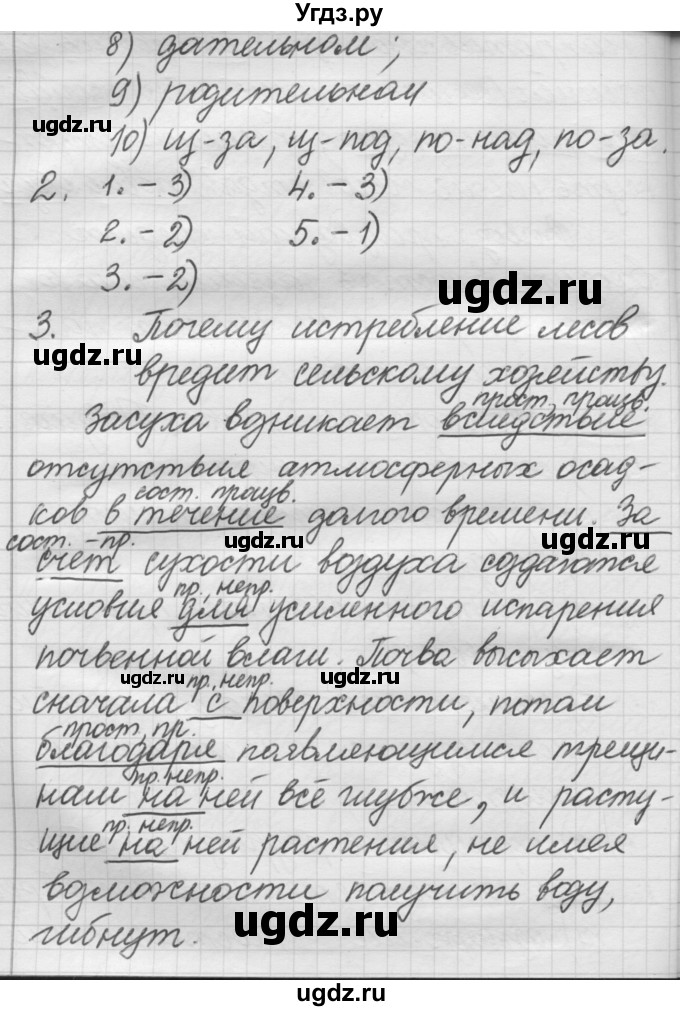 Угдз.ру
8) дательном;
9) родительном
ugdz.ru
10) из-за, из-под, по-над, по-за.
2. 1. – 3) 4. – 3)
2. – 2) 5. – 1)
3. – 2)
ugdz.ru
3. Почему истребление лесов
ugdz.ru
вредит сельскому хозяйству.
прост. произв.
Засуха возникает вследствие
отсутствия атмосферных осад-
сост. произв.
ков в течение долгого времени. За
сост. – пр.
ugdz.ru ugdz.ru
счет сухости воздуха создаются
пр. непр.
условия для усиленного испарения
почвенной влаги. Почва высыхает
ugdz.ru пр. непр. ugdz.ru
сначала с поверхности, потом
прост. пр.
благодаря появляющимся трещи-
пр. непр.
нам на ней всё глубже, и расту-
пр. непр.
щие на ней растения, не имея
возможности получить воду,
гибнут.
ugdz.ru
ugdz.ru